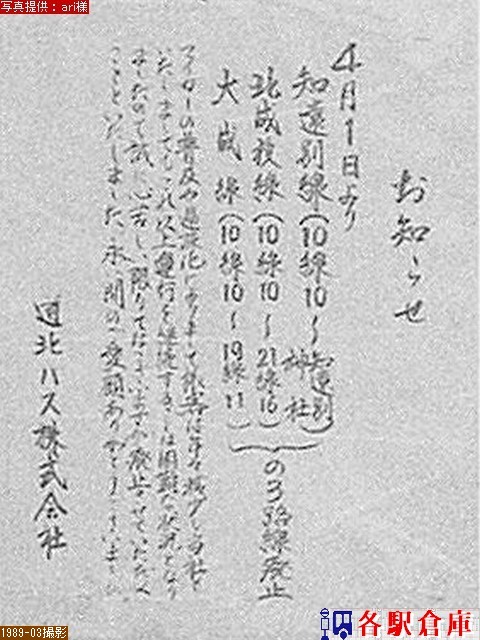 写真提供：ari様
お知らせ
4月1日より
知遠別線(10線10～知遠別神社)
北成校線(10線10～21線16)
大成線(10線10～19線11)
の3路線廃止
マイカーの普及や過疎化によりまして乗客は年々減少し当社と
いたしましてもこれ以上運行を継続することは困難な状況となり
ましたので誠に心苦しい限りではございますが廃止させていただく
ことといたしました。永い間のご愛顧ありがとうございました
道北バス株式会社
1989-03撮影
各駅倉庫